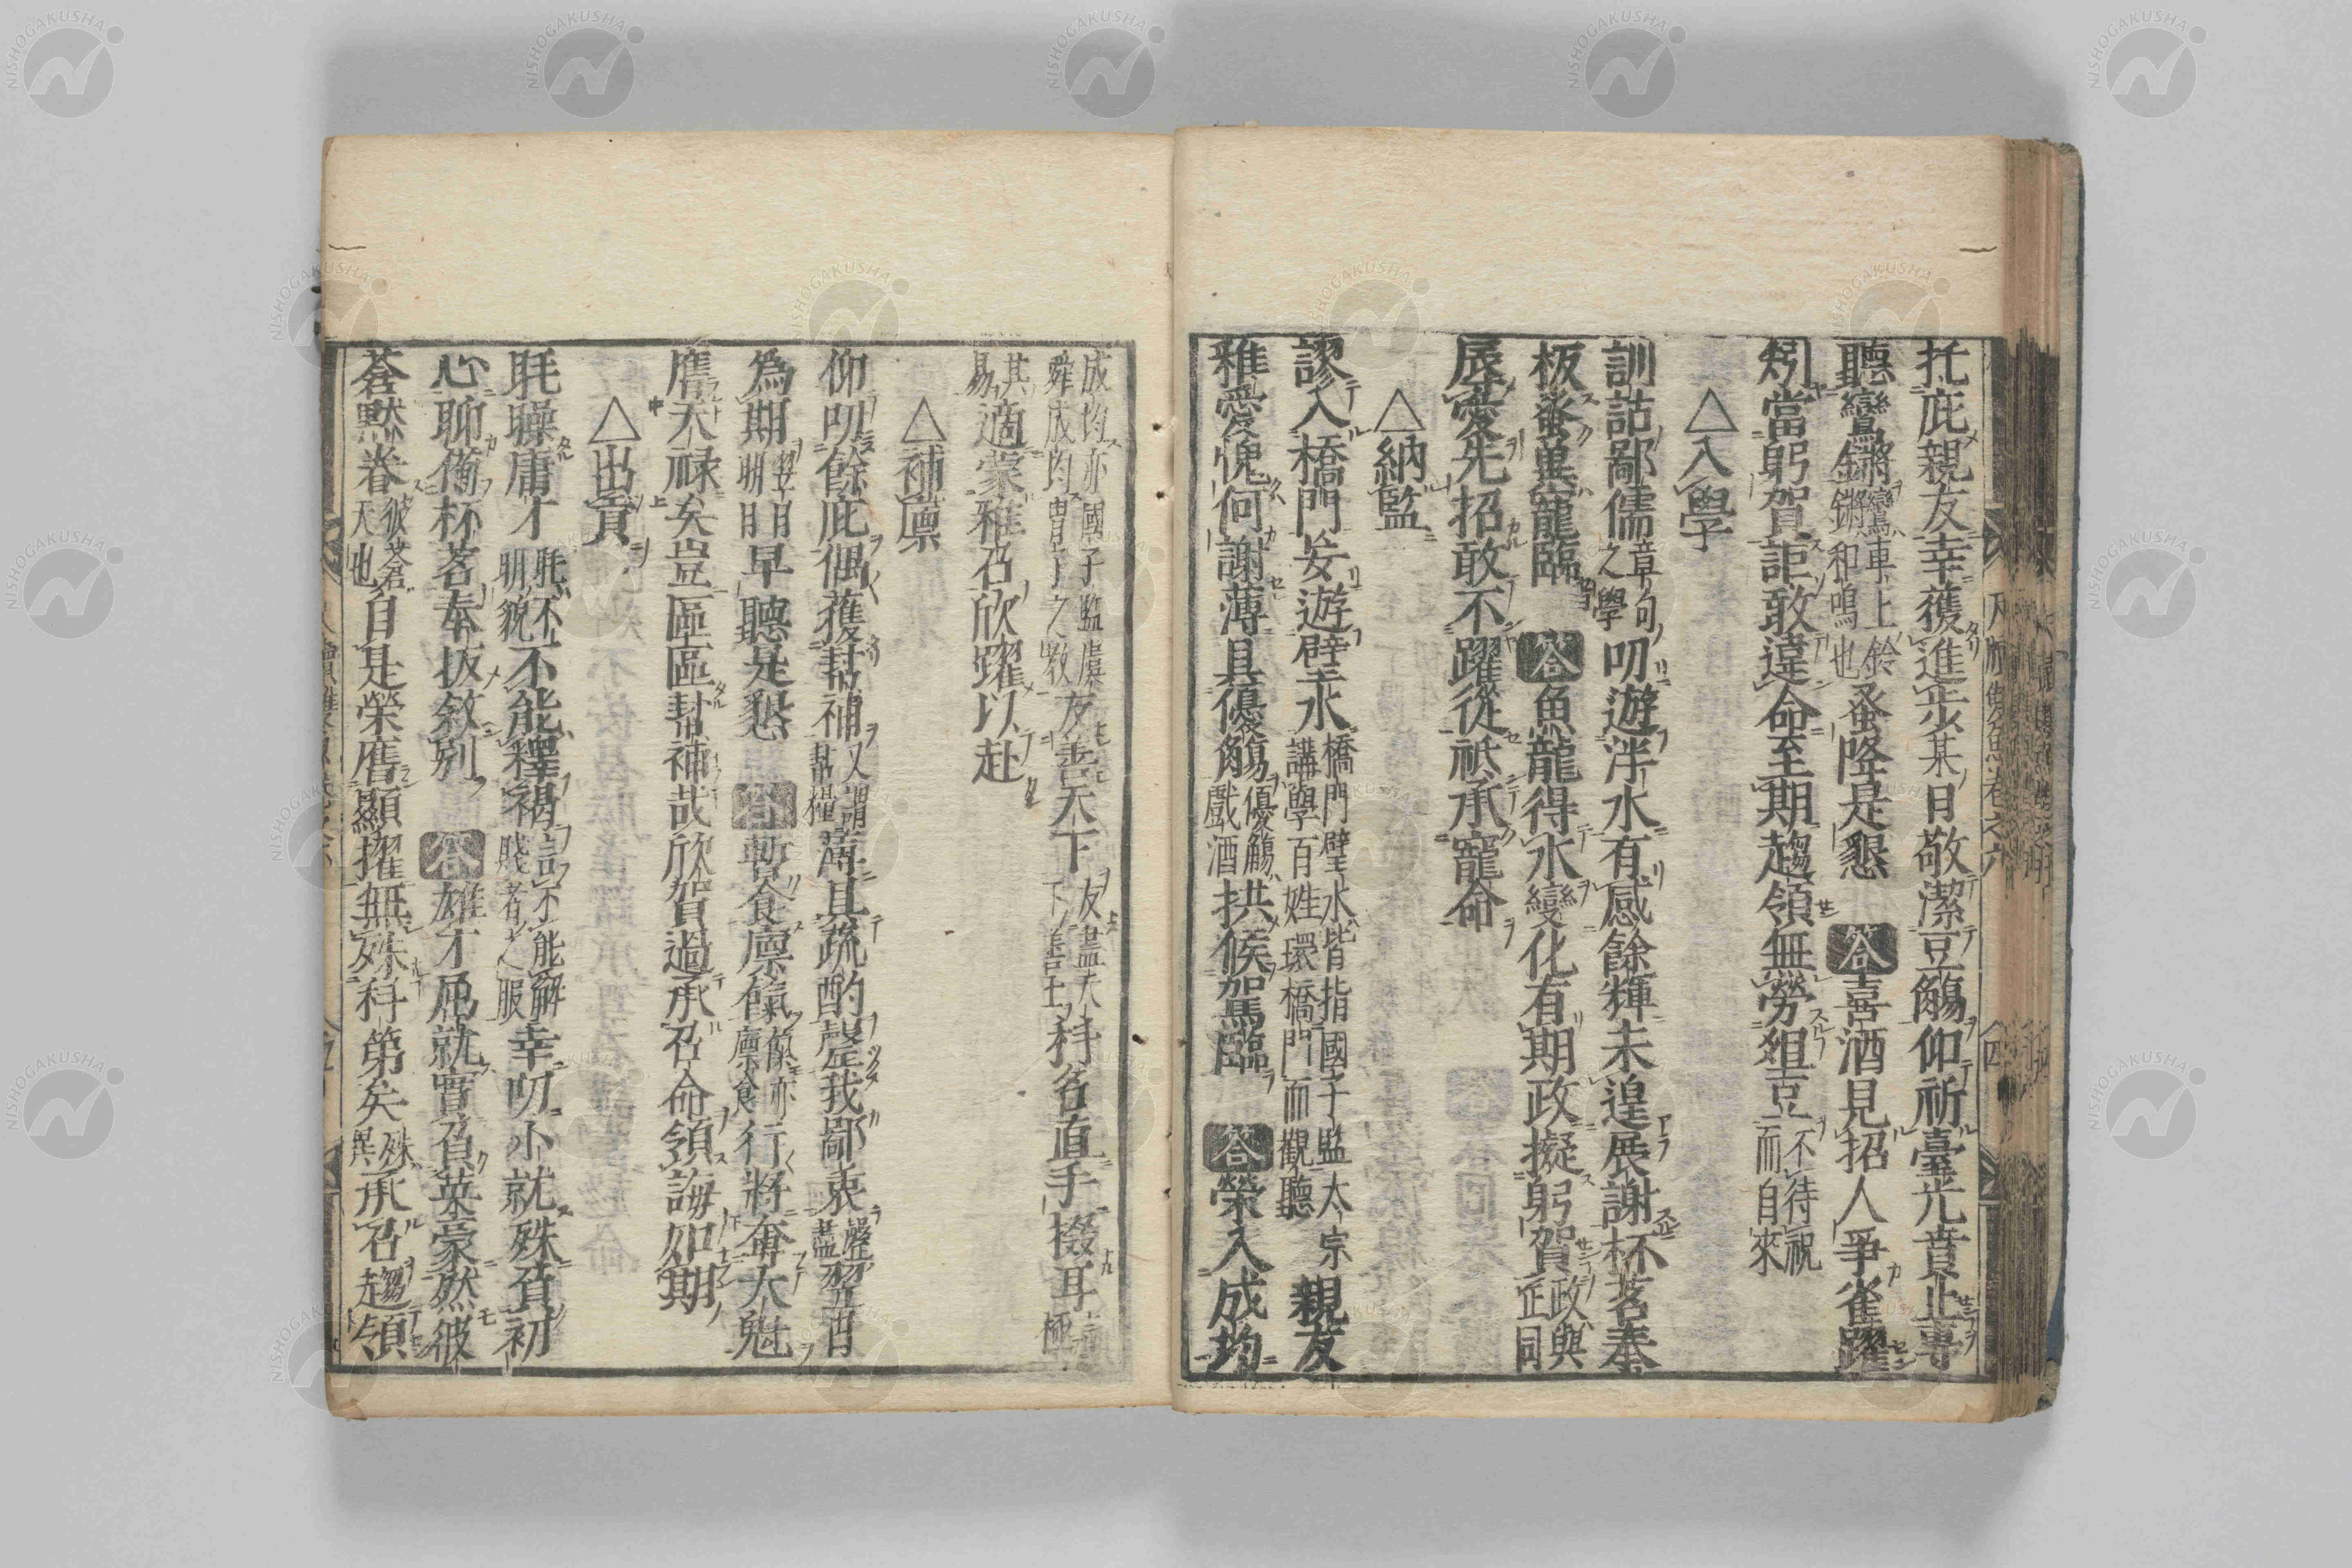 托庇親友幸獲進步某日敬潔豆觴仰祈臺光賁止專
聽鸞鏘鸞車上鈴鏘和鳴也蚤降是懇 答喜酒見招人爭雀躍
矧當躬賀詎敢違命至期趨領無勞俎豆不待祝而自來
△入學
訓詁鄙儒章句之學叨遊泮水有感餘輝未遑展謝杯茗奉
板蚤冀寵臨 答魚龍得水變化有期政擬躬賀政與正同
辰愛先招敢不躍從祗承寵命
△納監
謬入橋門妄遊壁水橋門壁水皆指國子監太宗講學百姓環橋門而觀聽親友
雅愛愧何謝薄具優觴優觴戲酒拱候駕臨 答榮入成均
成均亦國子監虞舜成均冑子之教友善天下友盡天下善士拜名直手掇耳言極
其易適蒙雅召欣躍以赴
△補廩
仰叨餘庇偶獲幫補又謂幫糧薄具疏酌罄我鄙衷罄盡翌酉
為期翌明明日早聽是懇 答暫食廪餼餼亦廪食行將奪大魁
膺天祿矣豈區區幫補哉欣賀過承召命領誨如期
△出貢
眊矂庸才眊不明貌不能釋褐言不能解賤者之服幸叨小就殊負初
心聊備杯茗奉扳敘別 答雄才鳳就實負英豪然彼
蒼默眷彼蒼天也自是榮膺顯擢無殊科第矣殊異承召趨領